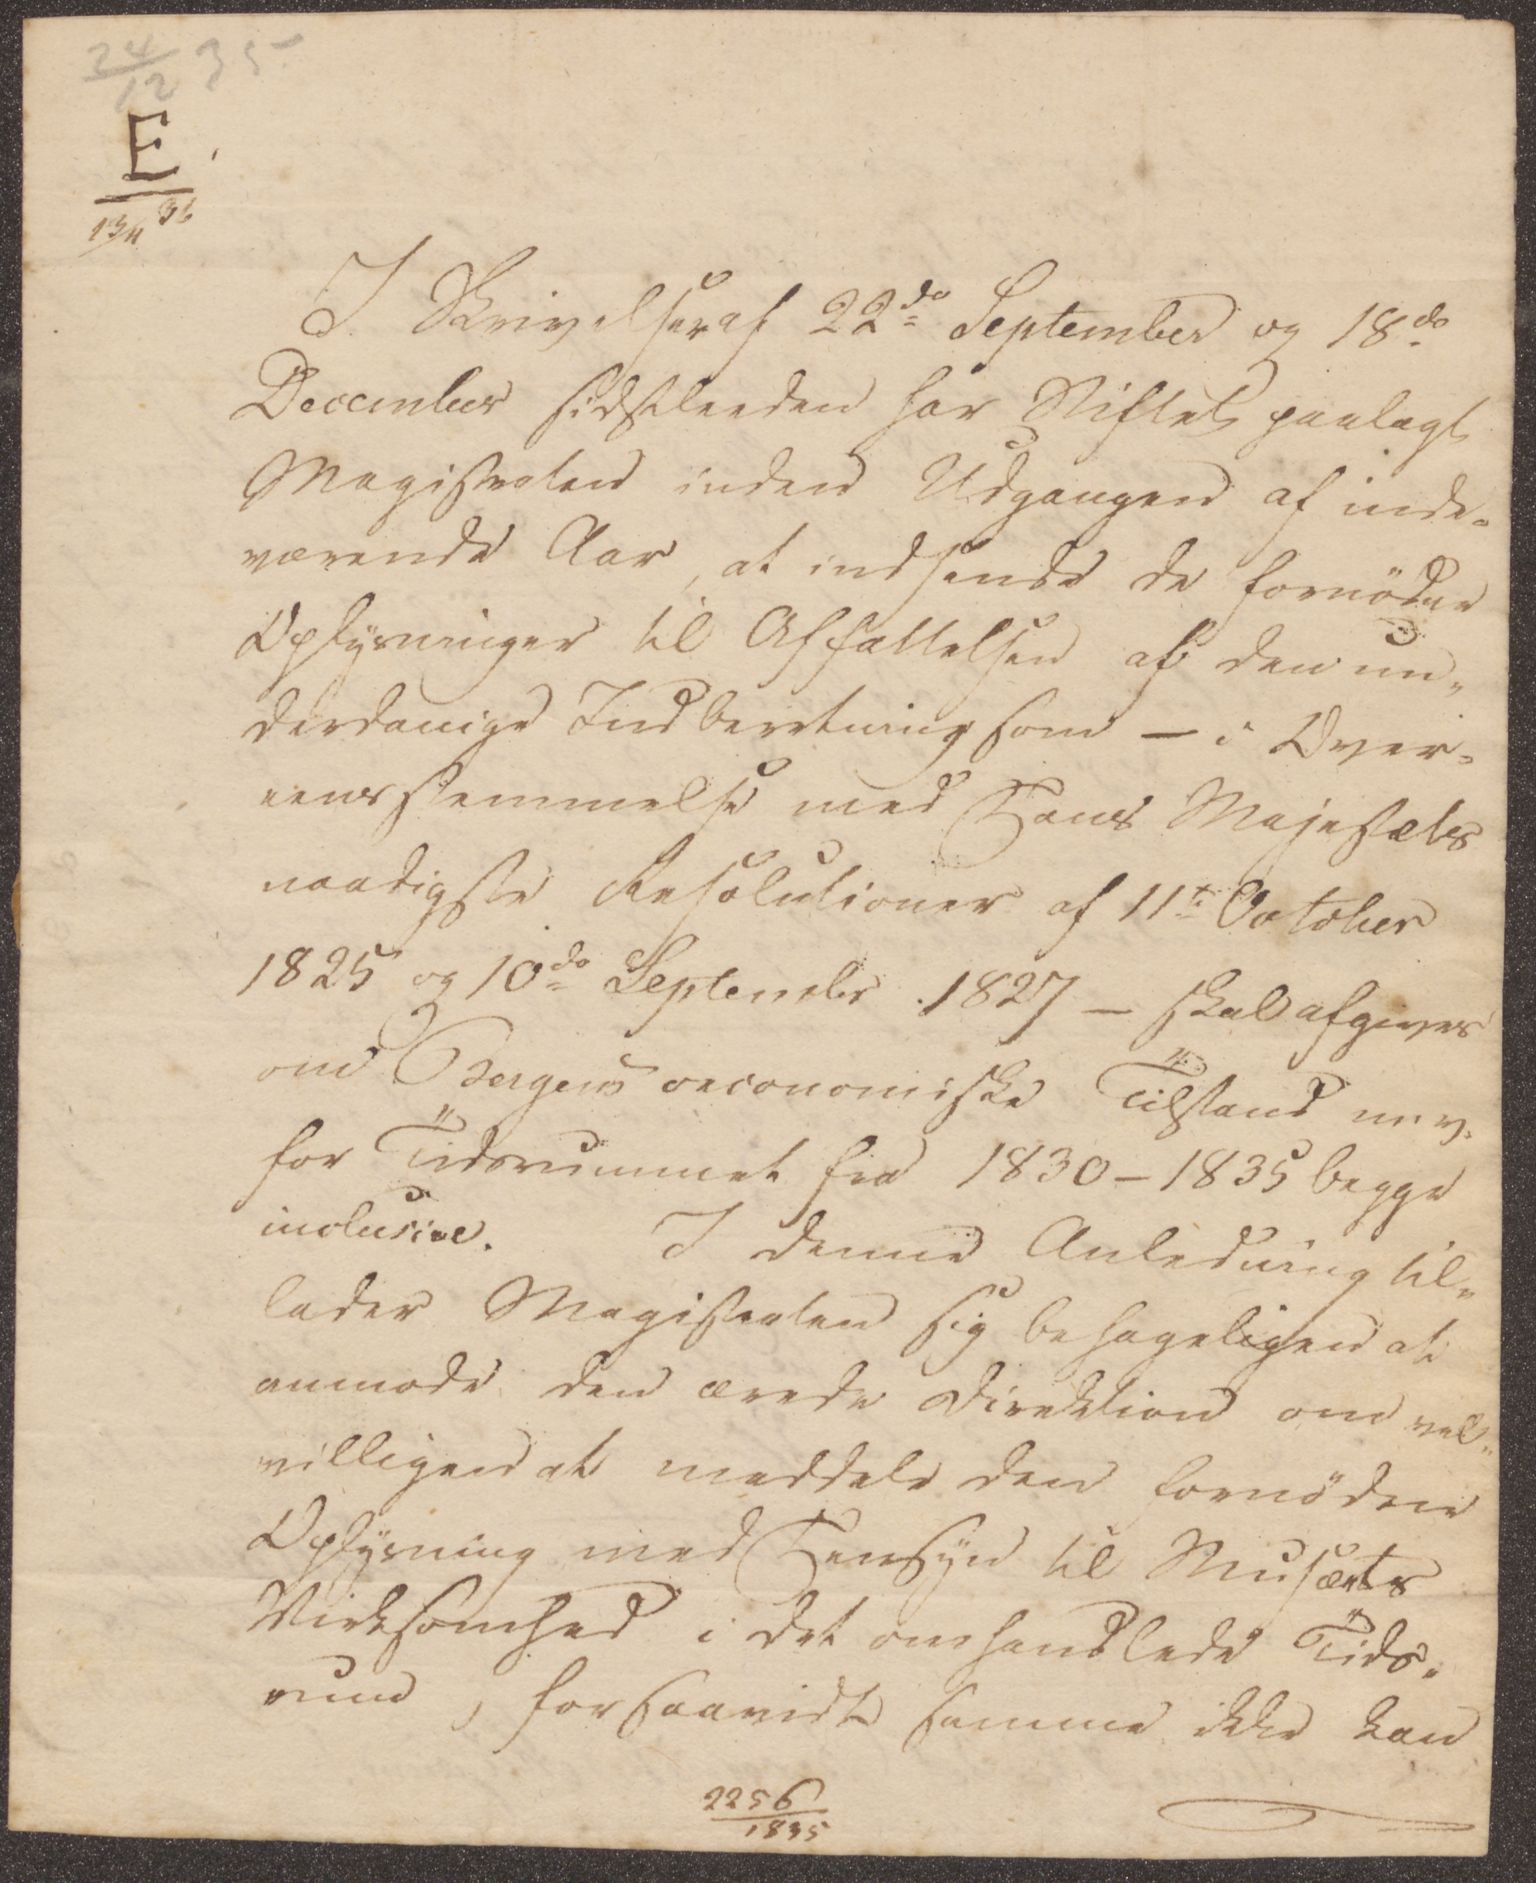 24/12 35
E.
13/4 36
I Skrivelser af 22de September og 18de
December sidstleeden har Stiftet paalagt
Magistraten inden Udgangen af inde-
værende Aar, at indsende de fornødne
Oplysninger til Affattelsen af den un-
derdanige Indberetning som – i Over-
eensstemmelse med Hans Majestæts
naadigste Resolutioner af 11te October
1825 og 10de September 1827 – skal afgives
om Bergens oeconomiske Tilstand m. v.
for Tidsrummet fra 1830–1835 begge
inclusive. I denne Anledning til-
lader Magistraten sig behageligen at
anmode den ærede Direktion om vel-
villigen at meddele den fornødne
Oplysning med Hensyn til Musæets
Virksomhed i det omhandlede Tids-
rum, forsaavidt samme ikke kan
2256
1835